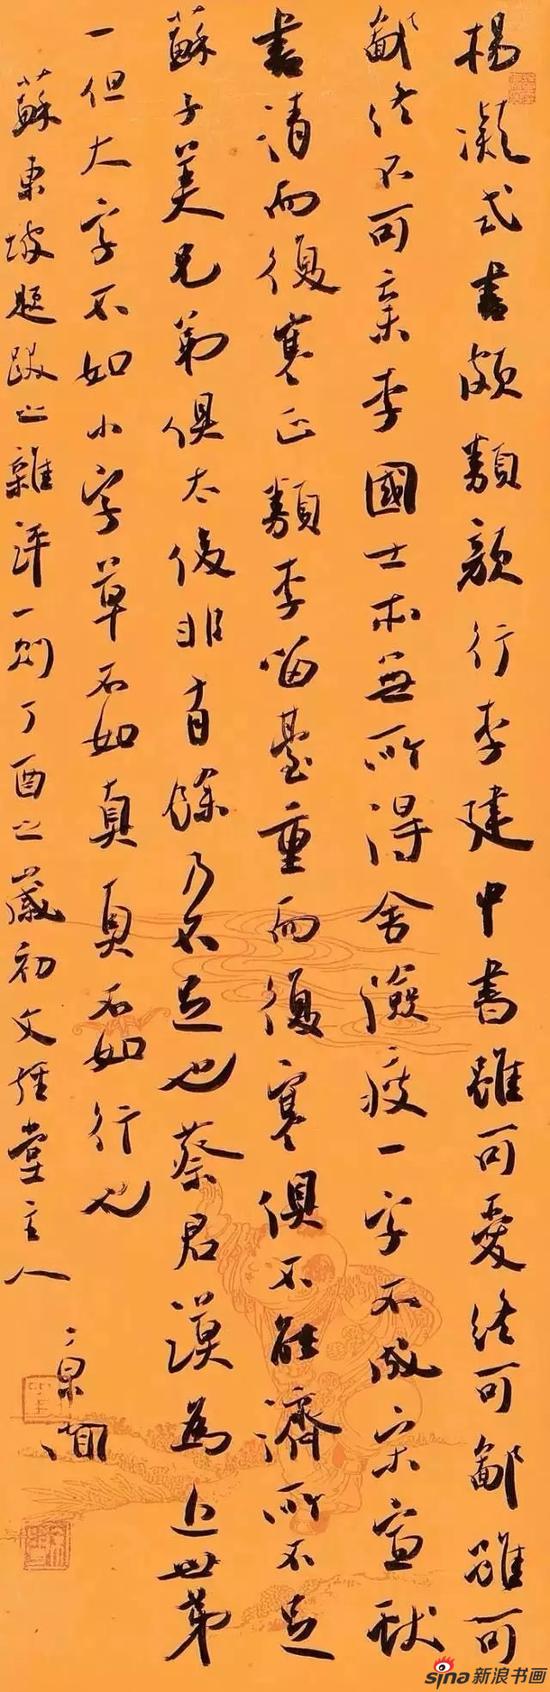 楊凝式書頗類顏行李建中書雖可愛終可鄙雖可
鄙終不可棄李國士本無所得舍險瘦一字不成宋宣獻
書清而復寒正類李留臺重而復寒俱不能濟所不足
蘇子美兄弟俱太俊非有餘乃不足也蔡君謨為近世第
一但大字不如小字草不如真真不如行也
蘇東坡題跋之雜評一則丁酉之歲初文堂主人
sina新浪书画